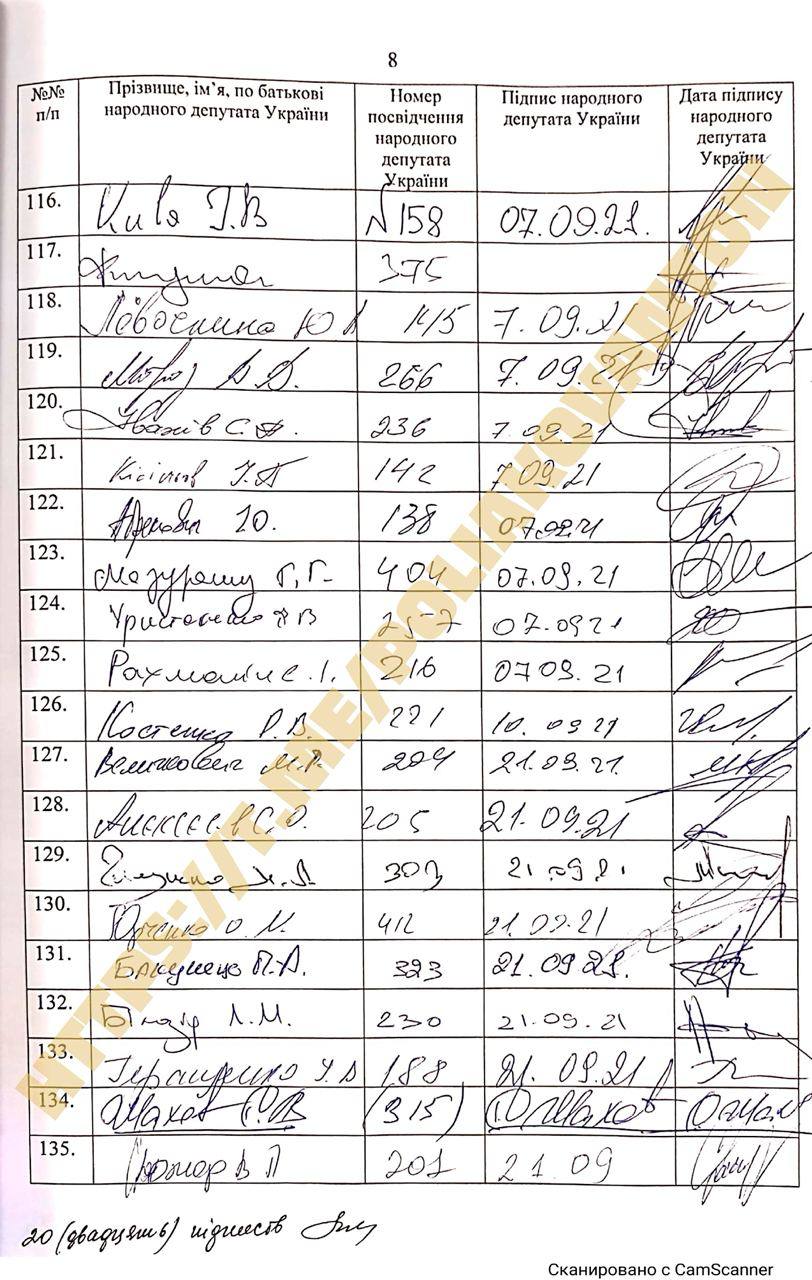 8
№№ п/п Прізвище, ім’я, по батькові народного депутата України Номер посвідчення народного депутата України Підпис народного депутата України Дата підпису народного депутата України
116. Кива №158 07.09.21.
117. 375
118. Льовочкина Ю 115 7.09.21
119. Мороз В.В. 266 7.09.21
120. Івахів С.П. 236 7.09.21
121. 142 7.09.21
122. Ю. 138 07.09.21
123. Мазурашу Г.Г. 404 07.09.21
124. Христенко Ф В 257 07.0921
125. Рахманін С.І. 216 0709.21
126. Костенко Р.В. 221 10.0921
127. Величкович М.Р. 204 21.09.21.
128. С.О. 205 21.09.21
129. 303 21.09.21
130. Юрченко О.М. 412 21.09.21
131. Бакунець П.А. 323 21.09.21.
132. Білозір Л.М. 230 21.09.21
133. Геращенко 188 21.09.21
134. Шахов С.В (315)
135. 201 21 09
20 (двадцять) підписів
HTTPS://T.ME/POLIAKOVANTON
Сканировано с CamScanner